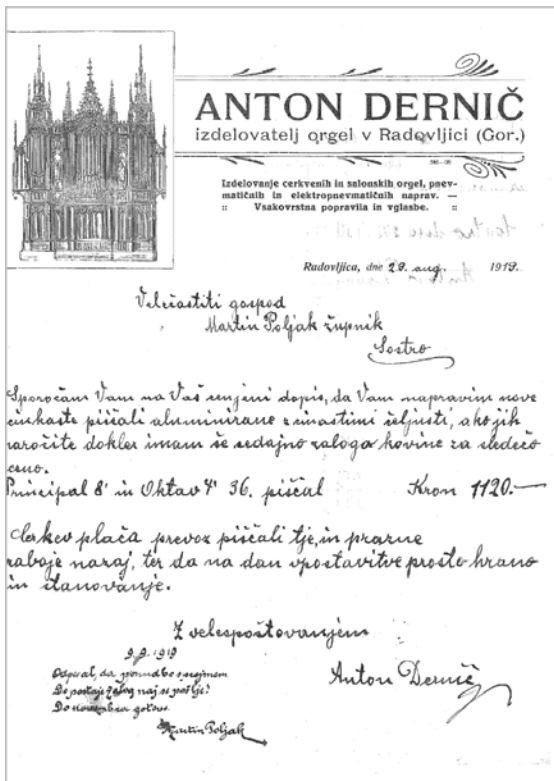 ANTON DERNIČ
izdelovatelj orgel v Radovljici (Gor.)
Izdelovanje cerkvenih in salonskih orgel, pnev-
matičnih in elektropnevmatičnih naprav. —
:: Vsakovrstna popravila in vglasbe. ::
Radovljica, dne 29. aug. 1919.
Velečastiti gospod
Martin Poljak župnik
Sostro
Sporočam Vam na Vaš cenjeni dopis, da Vam napravim nove
cinkaste piščali aluminirane z čeljusti, ako jih
naročite dokler imam še sedajno zaloga kovine za sledečo
ceno.
Principal 8' in Oktav 4' 36. piščal Kron 1120.—
Cerkev plača prevoz piščali tje, in prazne
zaboje nazaj, ter da na dan vpostavitve prosto hrano
in stanovanje.
Z velespoštovanjem
Anton Dernič
9.9.1919
Odpisal, da ponudbo sprejmem
Do postaje Zalog naj se pošlje!
Do novembra gotovo.
Martin Poljak